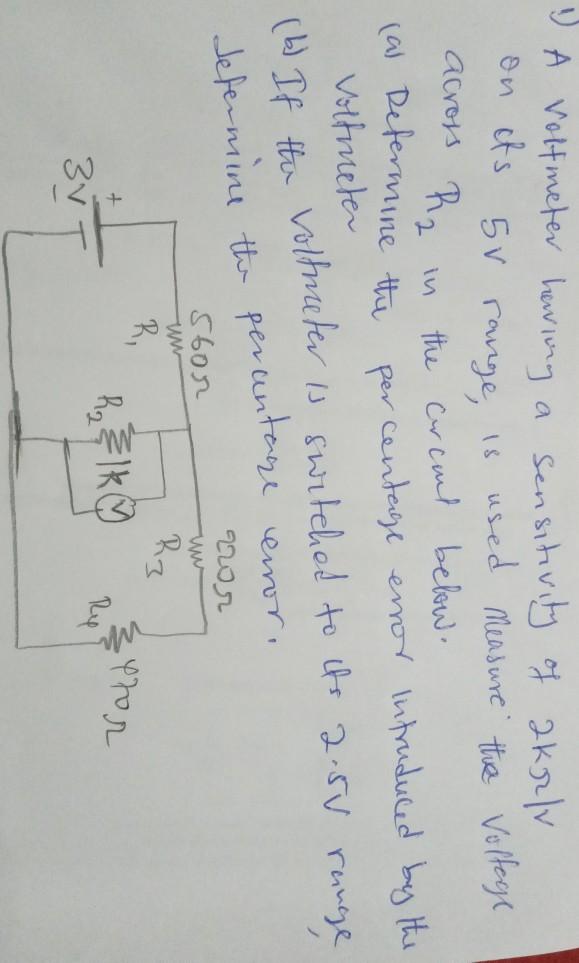 1) A voltmeter having a sensitivity of 2kΩ/V
on its 5V range, is used measure the voltage
across R2 in the circuit below.
(a) Determine the percentage error introduced by the
voltmeter
(b) If the voltmeter is switched to its 2.5V range,
determine the percentage error.
560Ω
220Ω
R1
R3
+
3V
-
R2
1K
V
R4
470Ω